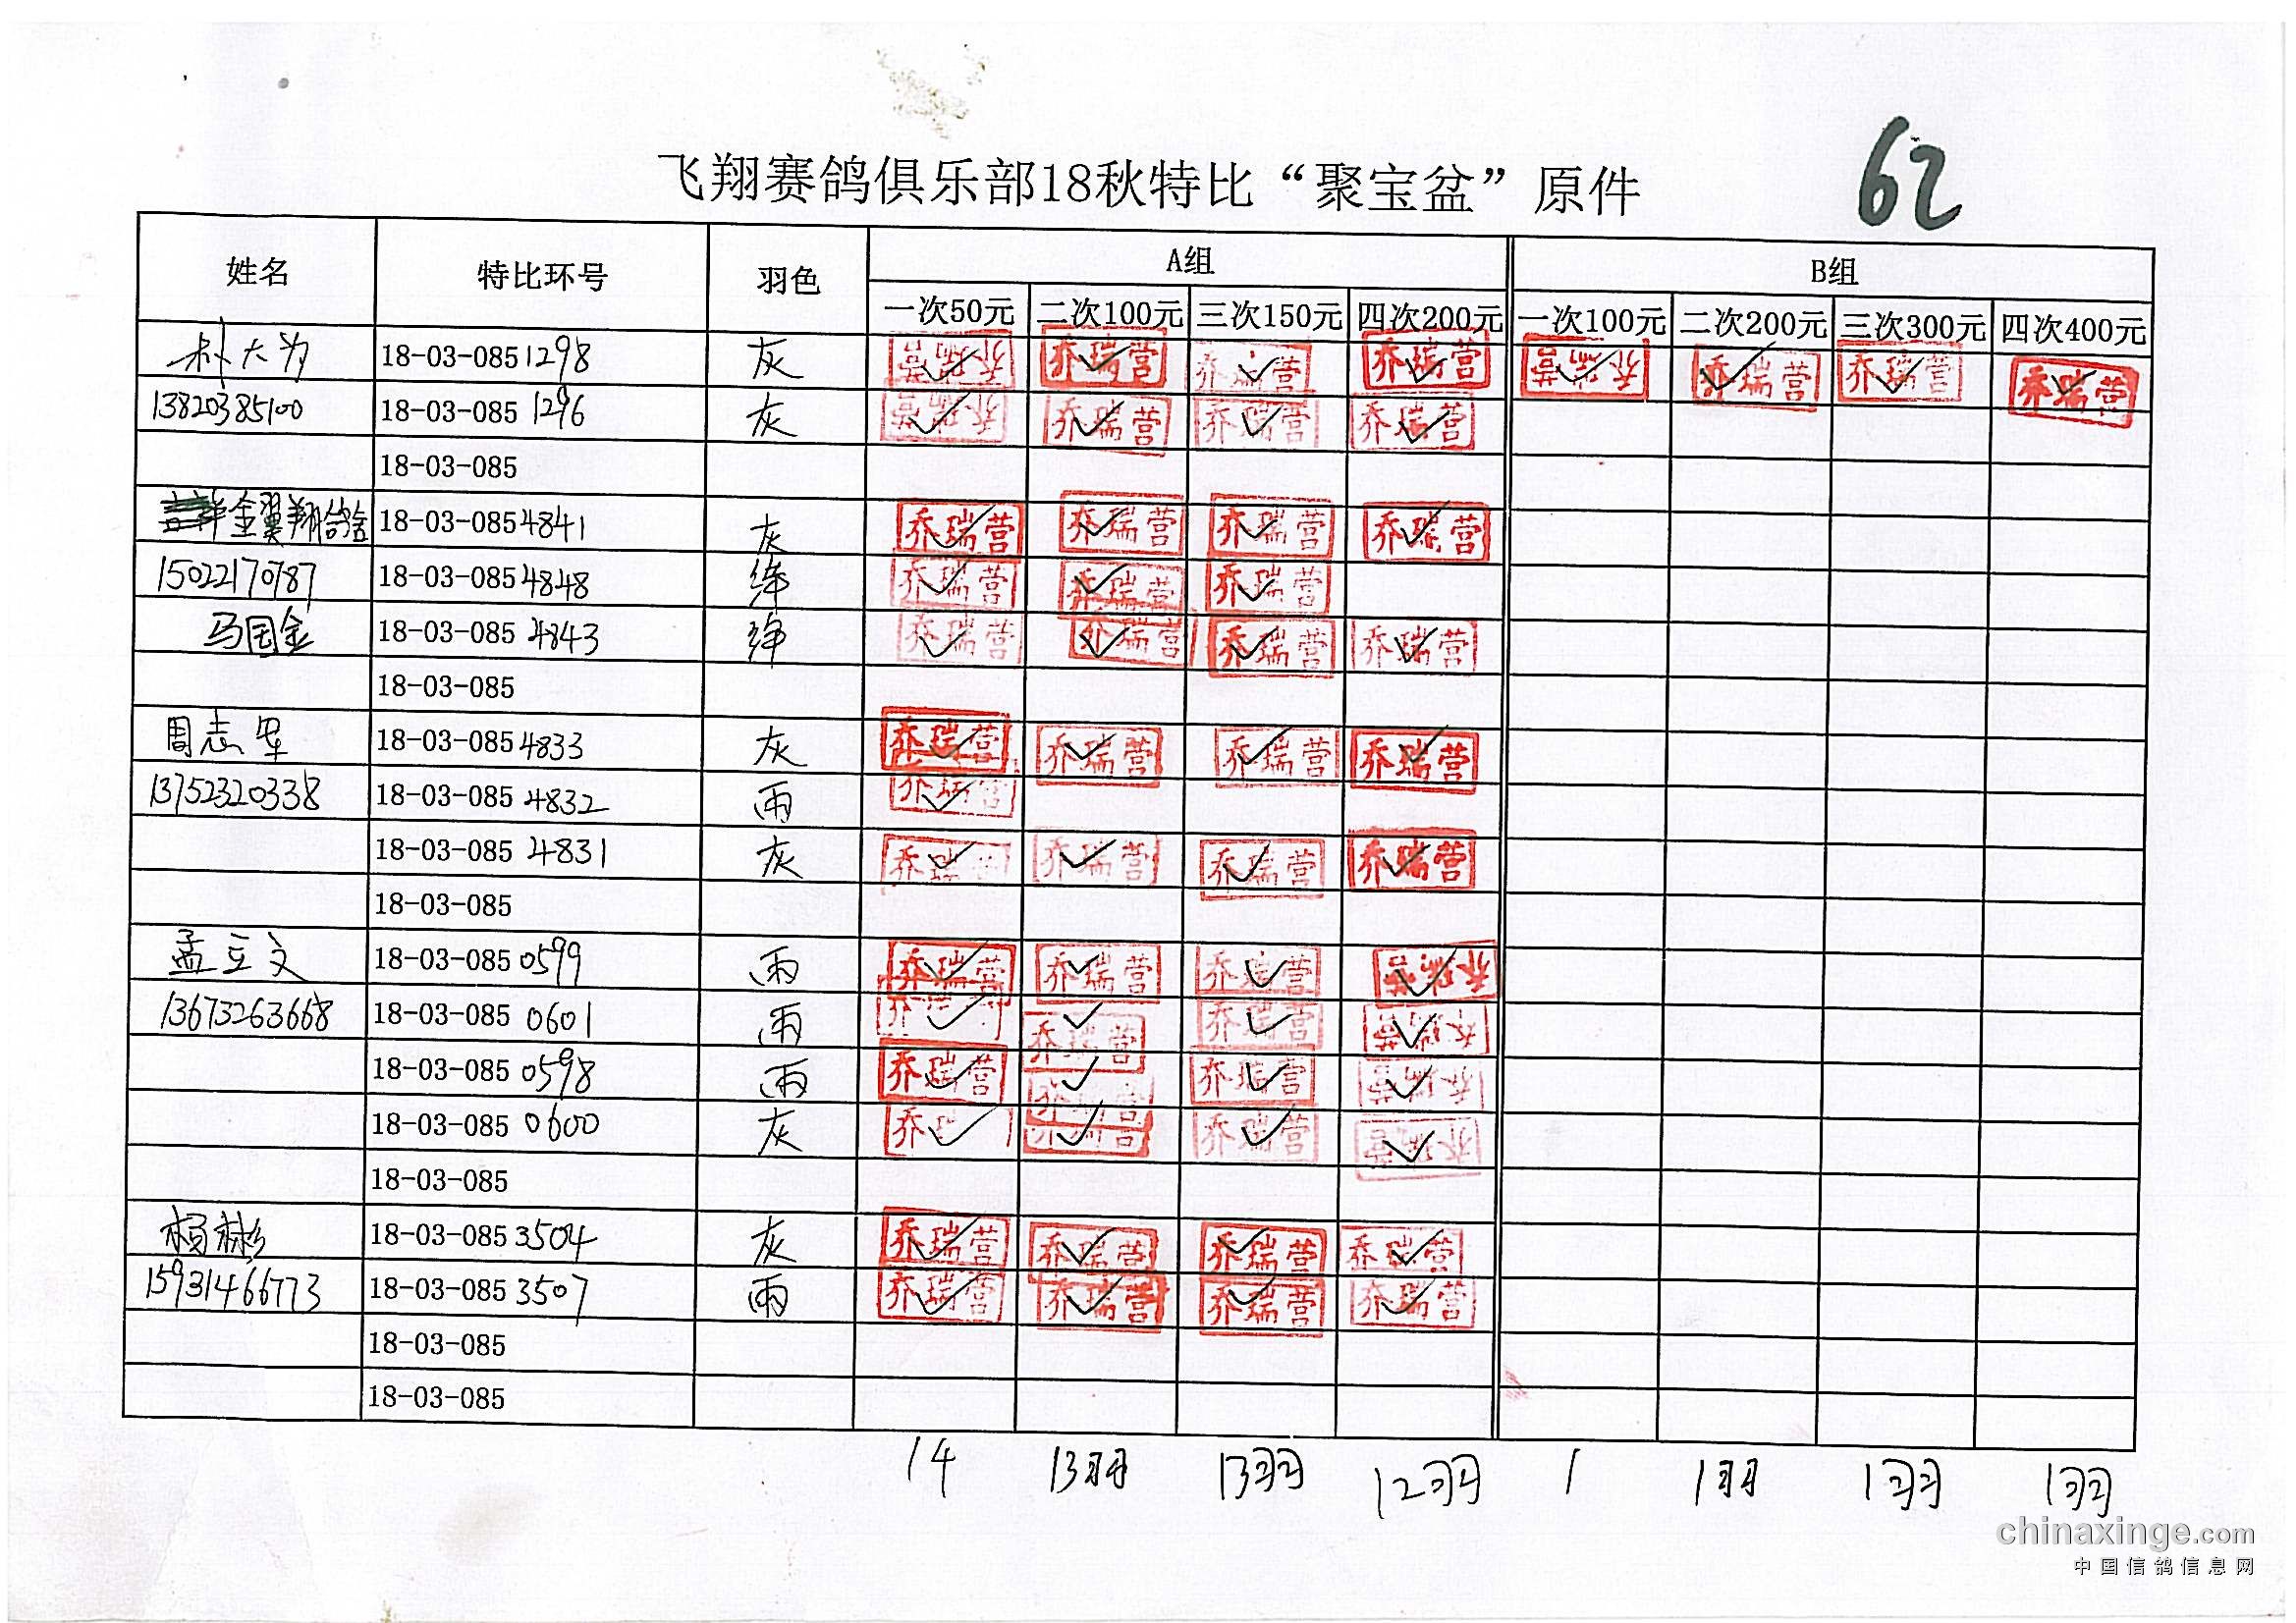 飞翔赛鸽俱乐部18秋特比“聚宝盆”原件
62
姓名 特比环号 羽色 A组 B组
一次50元 二次100元 三次150元 四次200元 一次100元 二次200元 三次300元 四次400元
朴大为 18-03-0851298 灰 乔瑞营 乔瑞营 乔瑞营 乔瑞营 乔瑞营 乔瑞营 乔瑞营 乔瑞营
13820385100 18-03-085 1296 灰 乔瑞营 乔瑞营 乔瑞营 乔瑞营
18-03-085
金翼翔鸽舍 18-03-0854841 灰 乔瑞营 乔瑞营 乔瑞营 乔瑞营
15022170787 18-03-0854848 绛 乔瑞营 乔瑞营 乔瑞营
马国金 18-03-085 4843 绛 乔瑞营 乔瑞营 乔瑞营 乔瑞营
18-03-085
周志军 18-03-0854833 灰 乔瑞营 乔瑞营 乔瑞营 乔瑞营
13752320338 18-03-085 4832 雨 乔瑞营
18-03-085 4831 灰 乔瑞营 乔瑞营 乔瑞营 乔瑞营
18-03-085
孟立文 18-03-085 0599 雨 乔瑞营 乔瑞营 乔瑞营 乔瑞营
13673263668 18-03-085 0601 雨 乔 乔瑞营 乔瑞营 乔瑞营
18-03-085 0598 雨 乔瑞营 乔瑞营 乔瑞营 乔瑞营
18-03-085 0600 灰 乔瑞 乔瑞营 乔瑞营 乔瑞营
18-03-085
杨彬 18-03-085 3504 灰 乔瑞营 乔瑞营 乔瑞营 乔瑞营
15931466773 18-03-085 3507 雨 乔瑞营 乔瑞营 乔瑞营 乔瑞营
18-03-085
18-03-085
14 13羽 13羽 12羽 1 1羽 1羽 1羽
chinaxinge.com
中国信鸽信息网